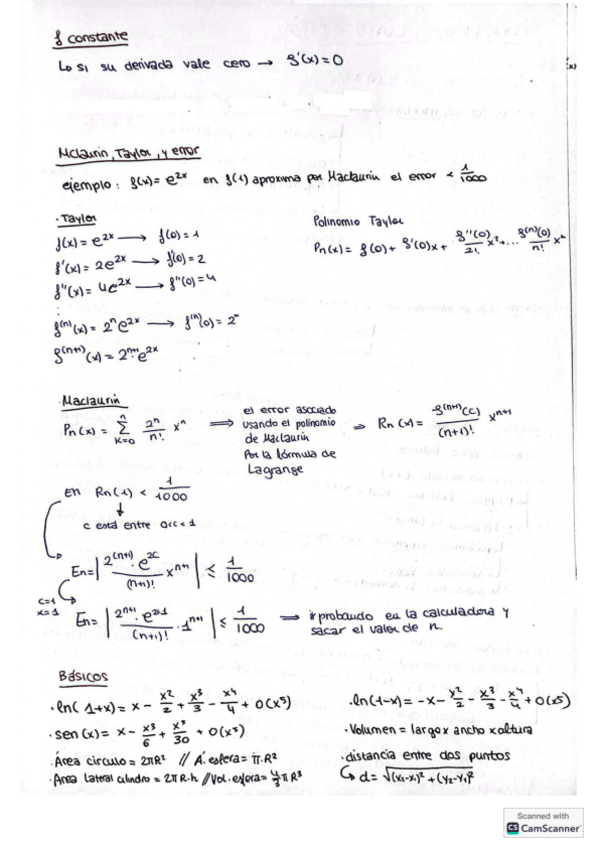 f constante
Lo si su derivada vale cero → f'(x)=0
Mclaurin, Taylor, y error
ejemplo: f(x)=e^2x en f(1) aproxima por Maclaurin el error < 1/1000
· Taylor
Polinomio Taylor
f(x)=e^2x → f(0)=1
Pn(x)= f(0)+ f'(0)x + f''(0)/2! x²+... f^(n)(0)/n! x^n
f'(x)= 2e^2x → f'(0)=2
f''(x)= 4e^2x → f''(0)=4
⋮
f^(n)(x)= 2^n e^2x → f^(n)(0)= 2^n
f^(n+1)(x)= 2^n+1·e^2x
· Maclaurin
Pn(x)= n Σ K=0 2^n/n! x^n ⟹ el error asociado
usando el polinomio
de Maclaurin
Por la fórmula de
Lagrange
⇒ Rn(x)= f^(n+1)(c)/(n+1)! x^n+1
En Rn(1) < 1/1000
↓
c está entre 0<c<1
En=| 2^(n+1)·e^2c/(n+1)! x^n+1 | ≤ 1/1000
c=1
x=1
En=| 2^n+1·e^2·1/(n+1)! · 1^n+1 | ≤ 1/1000 ⟹ ir probando en la calculadora y
sacar el valor de n.
Básicos
· ln(1+x)= x - x²/2 + x³/3 - x⁴/4 + O(x⁵)
· ln(1-x)= -x - x²/2 - x³/3 - x⁴/4 + O(x⁵)
· sen(x)= x - x³/6 + x⁵/30 + O(x⁵)
· Volumen = largo x ancho x altura
· Área círculo = 2πR² // A. esfera= π·R²
· distancia entre dos puntos
· Área lateral cilindro = 2πR·h // Vol. esfera= 4/3 πR³
↳ d= √(x₂-x₁)² + (y₂-y₁)²
Scanned with
CS CamScanner